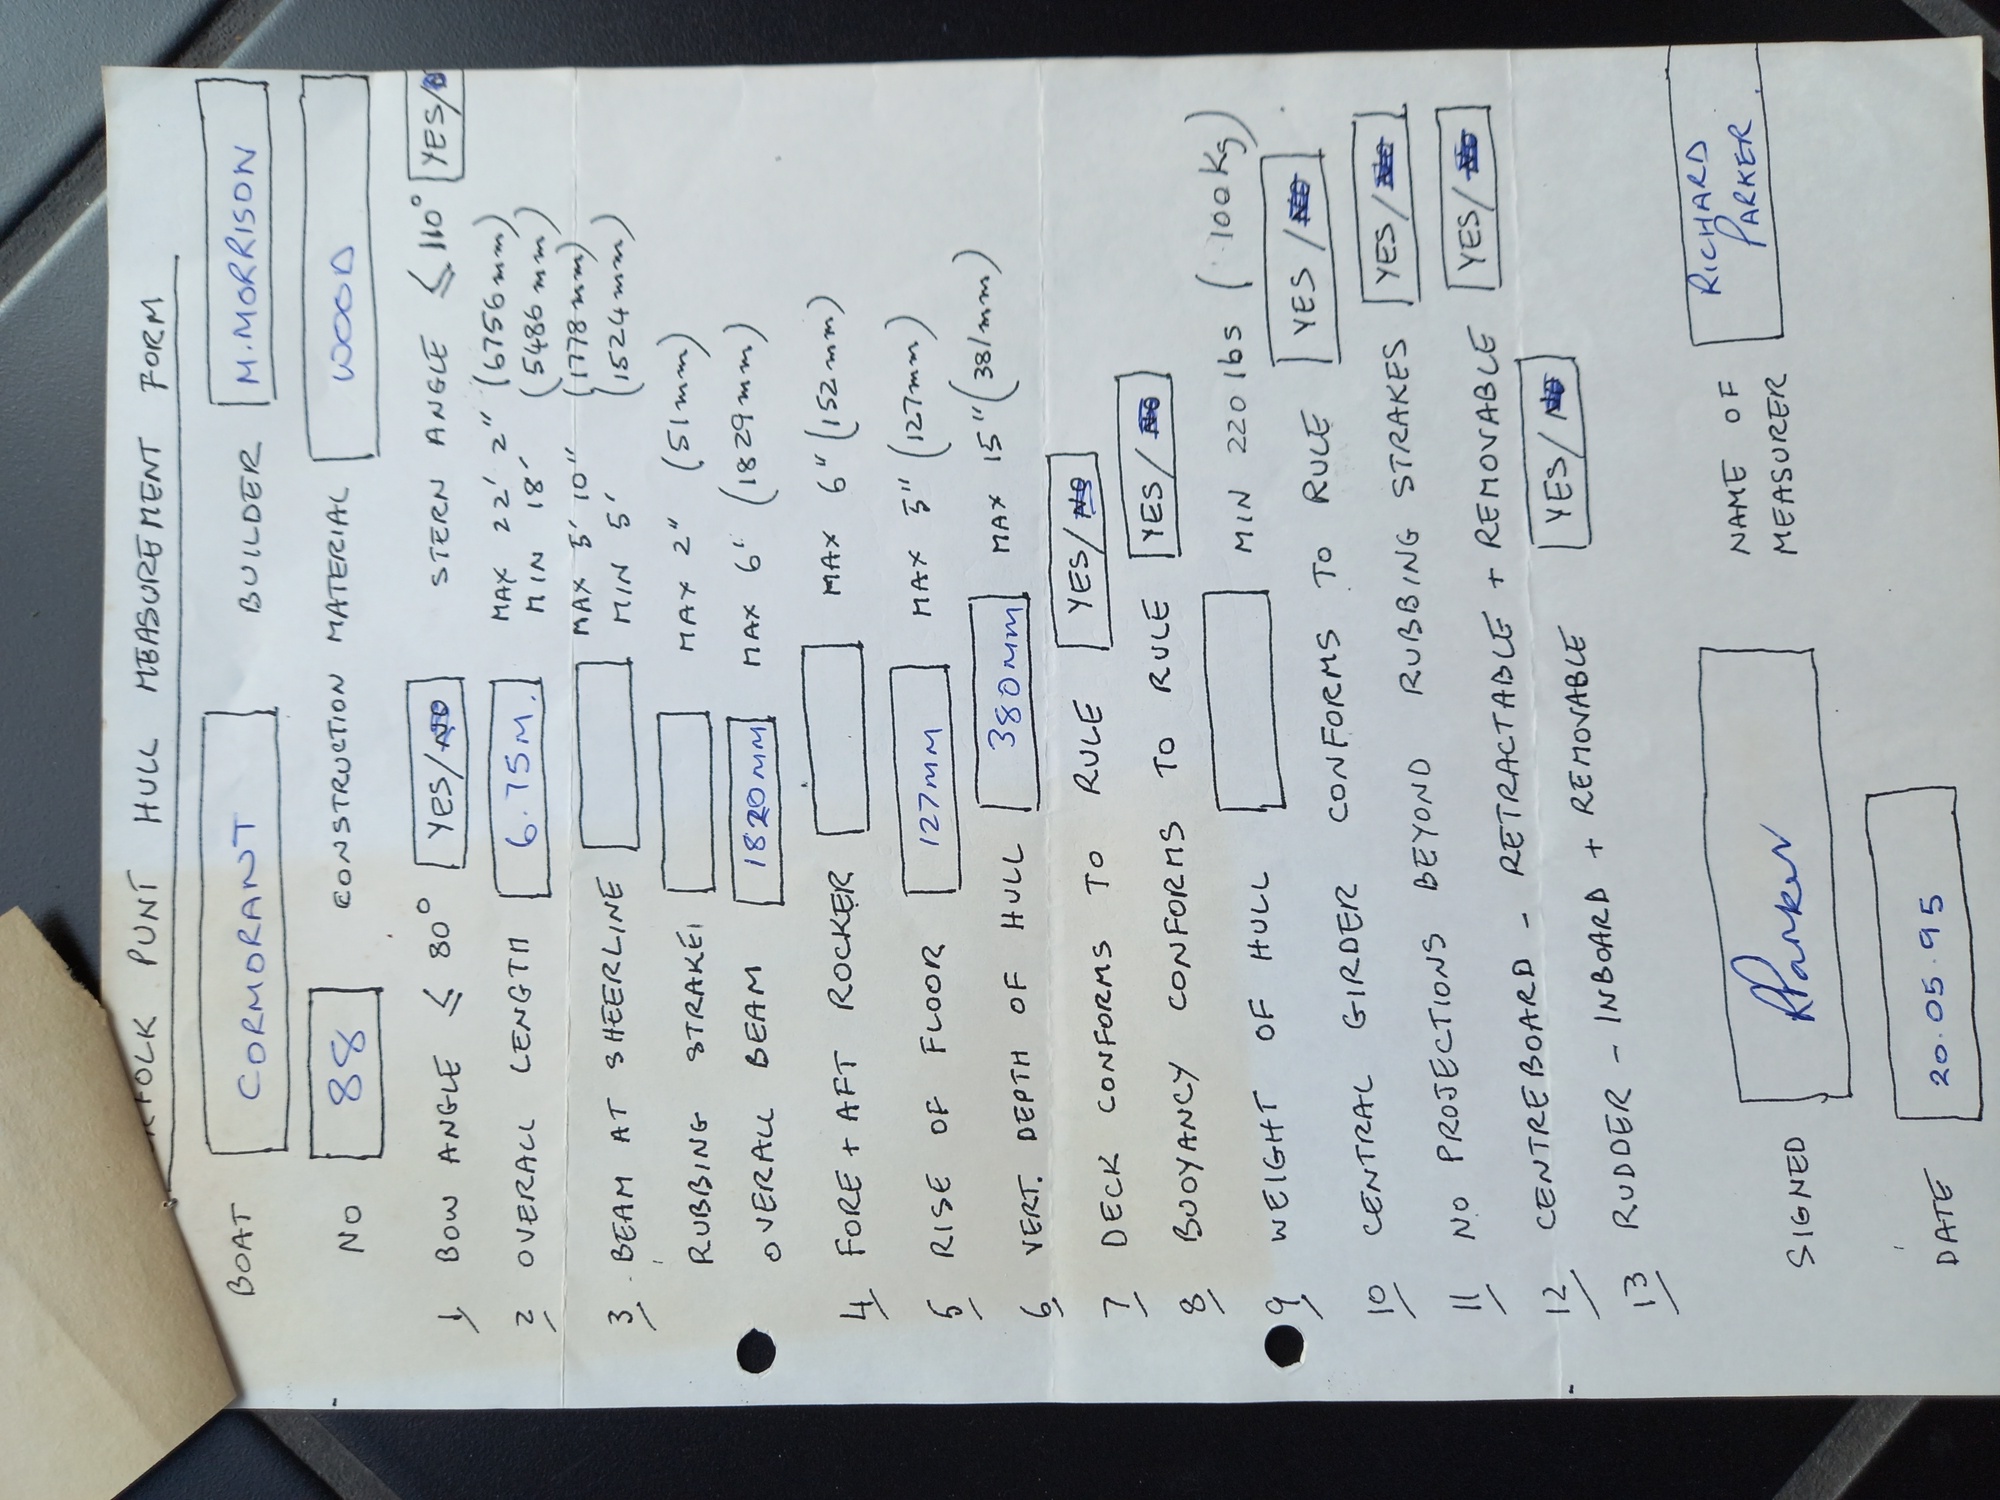 NORFOLK PUNT HULL MEASUREMENT FORM
BOAT CORMORANT BUILDER M. MORRISON
NO 88 CONSTRUCTION MATERIAL WOOD
1/ BOW ANGLE ≤ 80° YES/NO STERN ANGLE ≤ 110° YES/
2/ OVERALL LENGTH 6.75M. MAX 22' 2" (6756mm)
MIN 18' (5486mm)
3/ BEAM AT SHEERLINE MAX 5' 10" (1778mm)
MIN 5' (1524mm)
RUBBING STRAKE MAX 2" (51mm)
OVERALL BEAM 1820MM MAX 6' (1829mm)
4/ FORE + AFT ROCKER MAX 6" (152mm)
5/ RISE OF FLOOR 127MM MAX 5" (127mm)
6/ VERT. DEPTH OF HULL 380MM MAX 15" (381mm)
7/ DECK CONFORMS TO RULE YES/NO
8/ BUOYANCY CONFORMS TO RULE YES/NO
9/ WEIGHT OF HULL MIN 220 lbs (100Kg)
10/ CENTRAL GIRDER CONFORMS TO RULE YES/NO
11/ NO PROJECTIONS BEYOND RUBBING STRAKES YES/NO
12/ CENTREBOARD - RETRACTABLE + REMOVABLE YES/NO
13/ RUDDER - INBOARD + REMOVABLE YES/NO
SIGNED RParker NAME OF MEASURER RICHARD PARKER
DATE 20.05.95